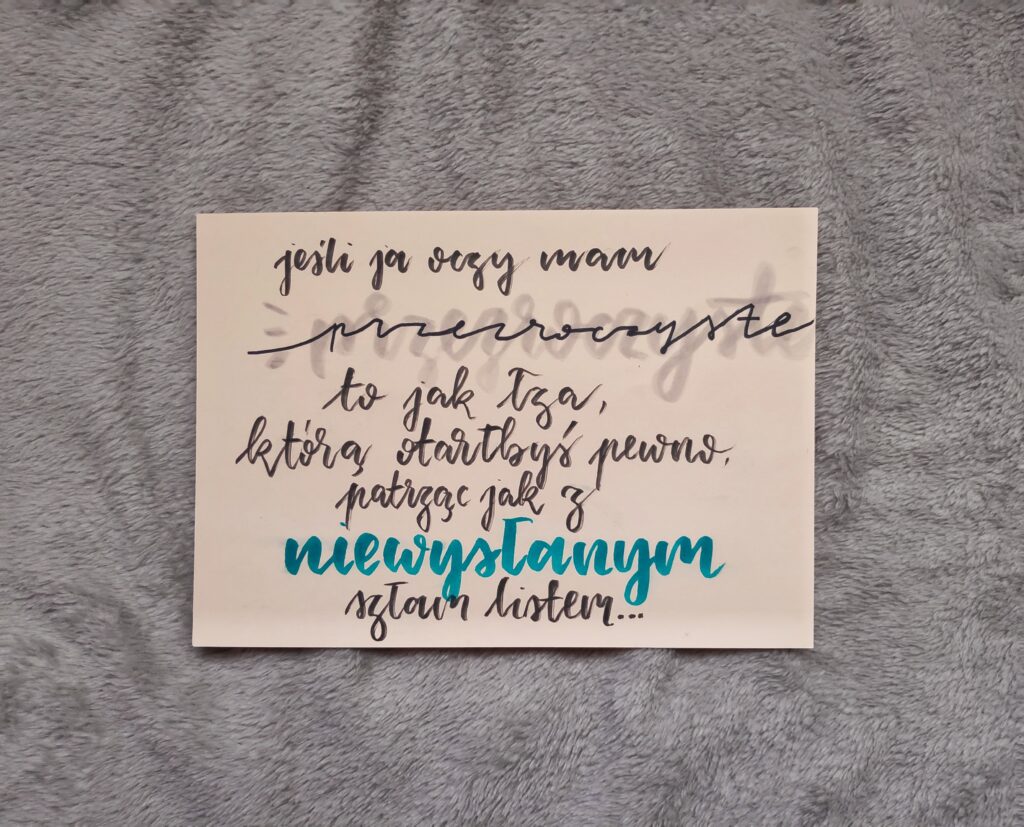 jeśli ja oczy mam
przezroczyste
to jak łza,
którą otarłbyś pewno,
patrząc jak z
niewysłanym
szłam listem...